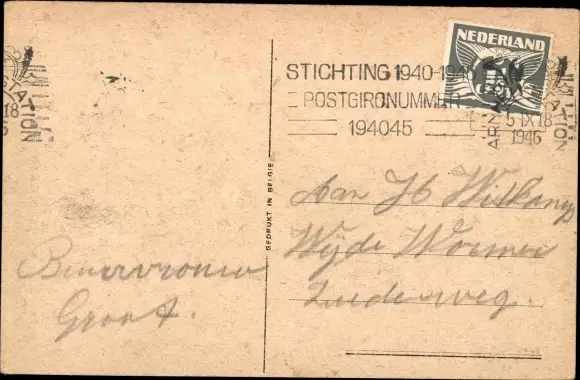 NEDERLAND
STICHTING 1940-1945
POSTGIRONUMMER
194045
ARNHEM
STATION
5 IX 18
1946
STAT
18
ION
GEDRUKT IN BELGIE
Aan H Witkamp
Wijde Wormer
Zuiderweg.
Buurvrouw
Groot.